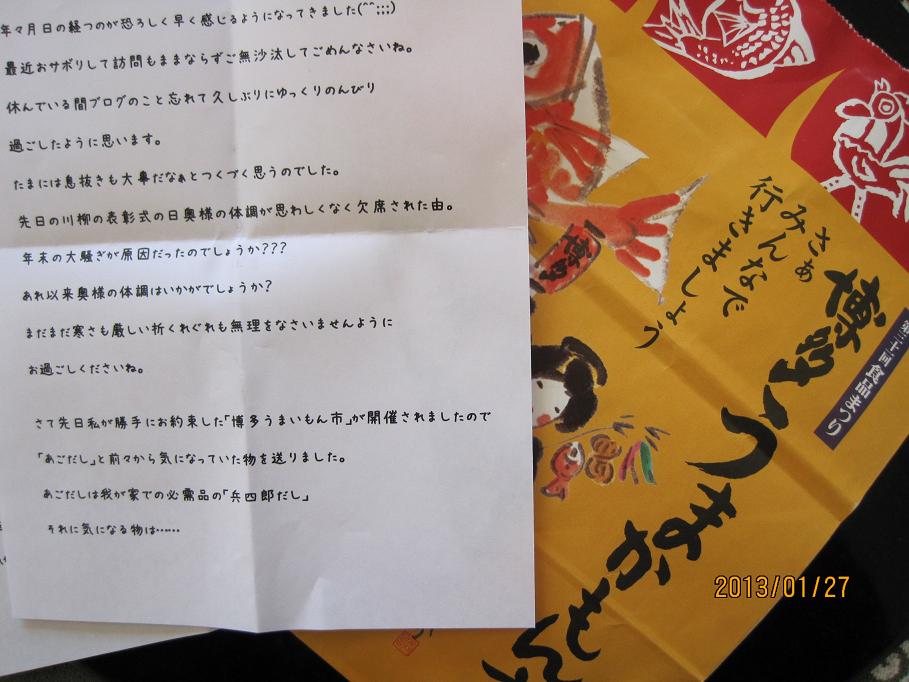 年々月日の経つのが恐ろしく早く感じるようになってきました(^^;;;)
最近おサボリして訪問もままならずご無沙汰してごめんなさいね。
休んでいる間ブログのこと忘れて久しぶりにゆっくりのんびり
過ごしたように思います。
たまには息抜きも大事だなぁとつくづく思うのでした。
先日の川柳の表彰式の日奥様の体調が思わしくなく欠席された由。
年末の大騒ぎが原因だったのでしょうか???
あれ以来奥様の体調はいかがでしょうか?
まだまだ寒さも厳しい折くれぐれも無理をなさいませんように
お過ごしくださいね。
さて先日私が勝手にお約束した「博多うまいもん市」が開催されましたので
「あごだし」と前々から気になっていた物を送りました。
あごだしは我が家での必需品の「兵四郎だし」
それに気になる物は……
さぁ
みんなで
行きましょう
博多うまかもん
食品まつり
博多
2013/01/27